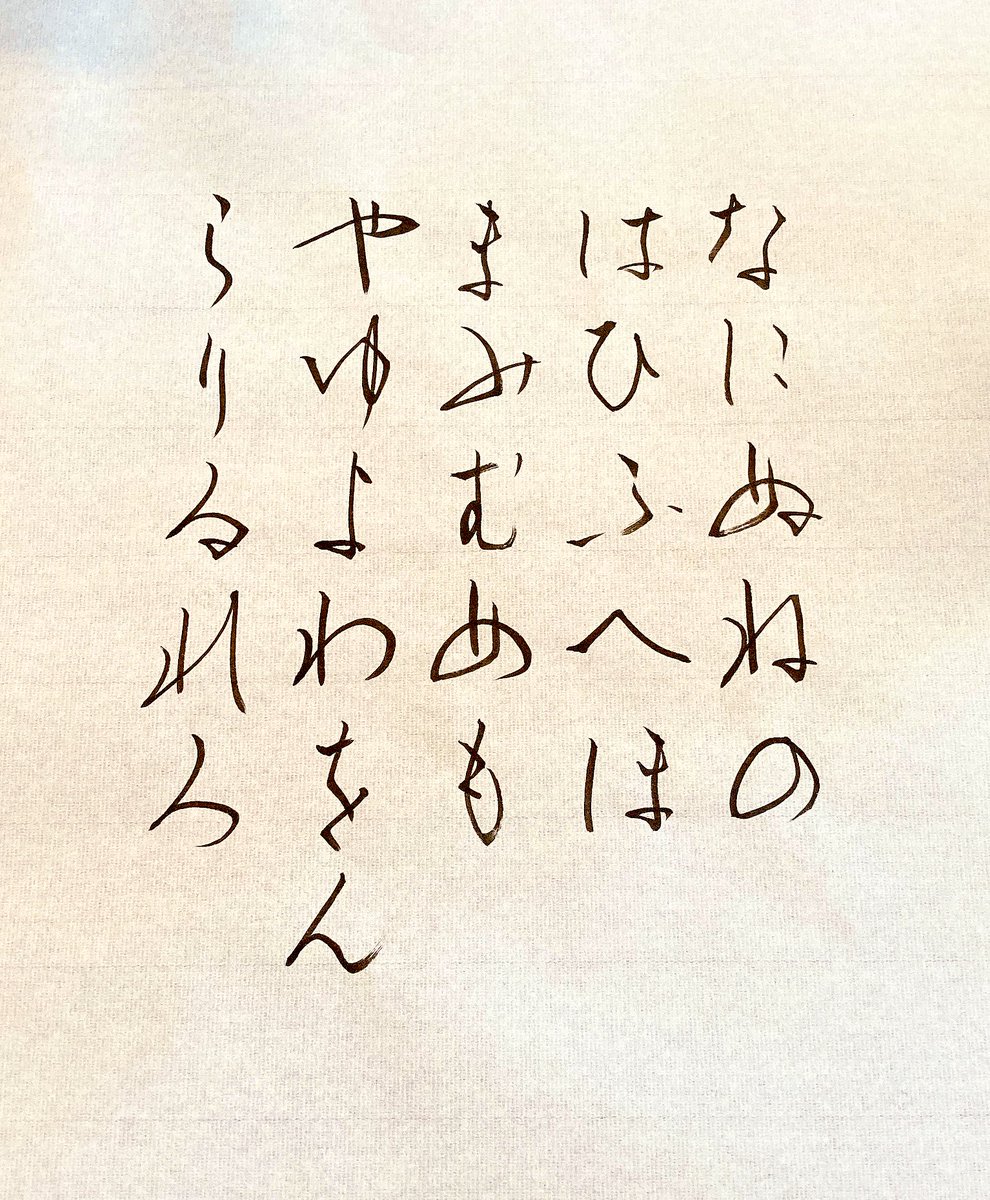 なにぬねの
はひふへほ
まみむめも
やゆよわをん
らりるれろ